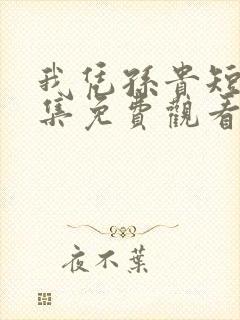 我凭孫貴短
集免費觀看
夜不葉